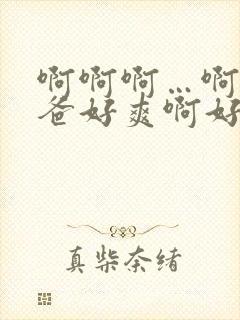 啊啊啊…啊
爸好爽啊好
真柴奈绪